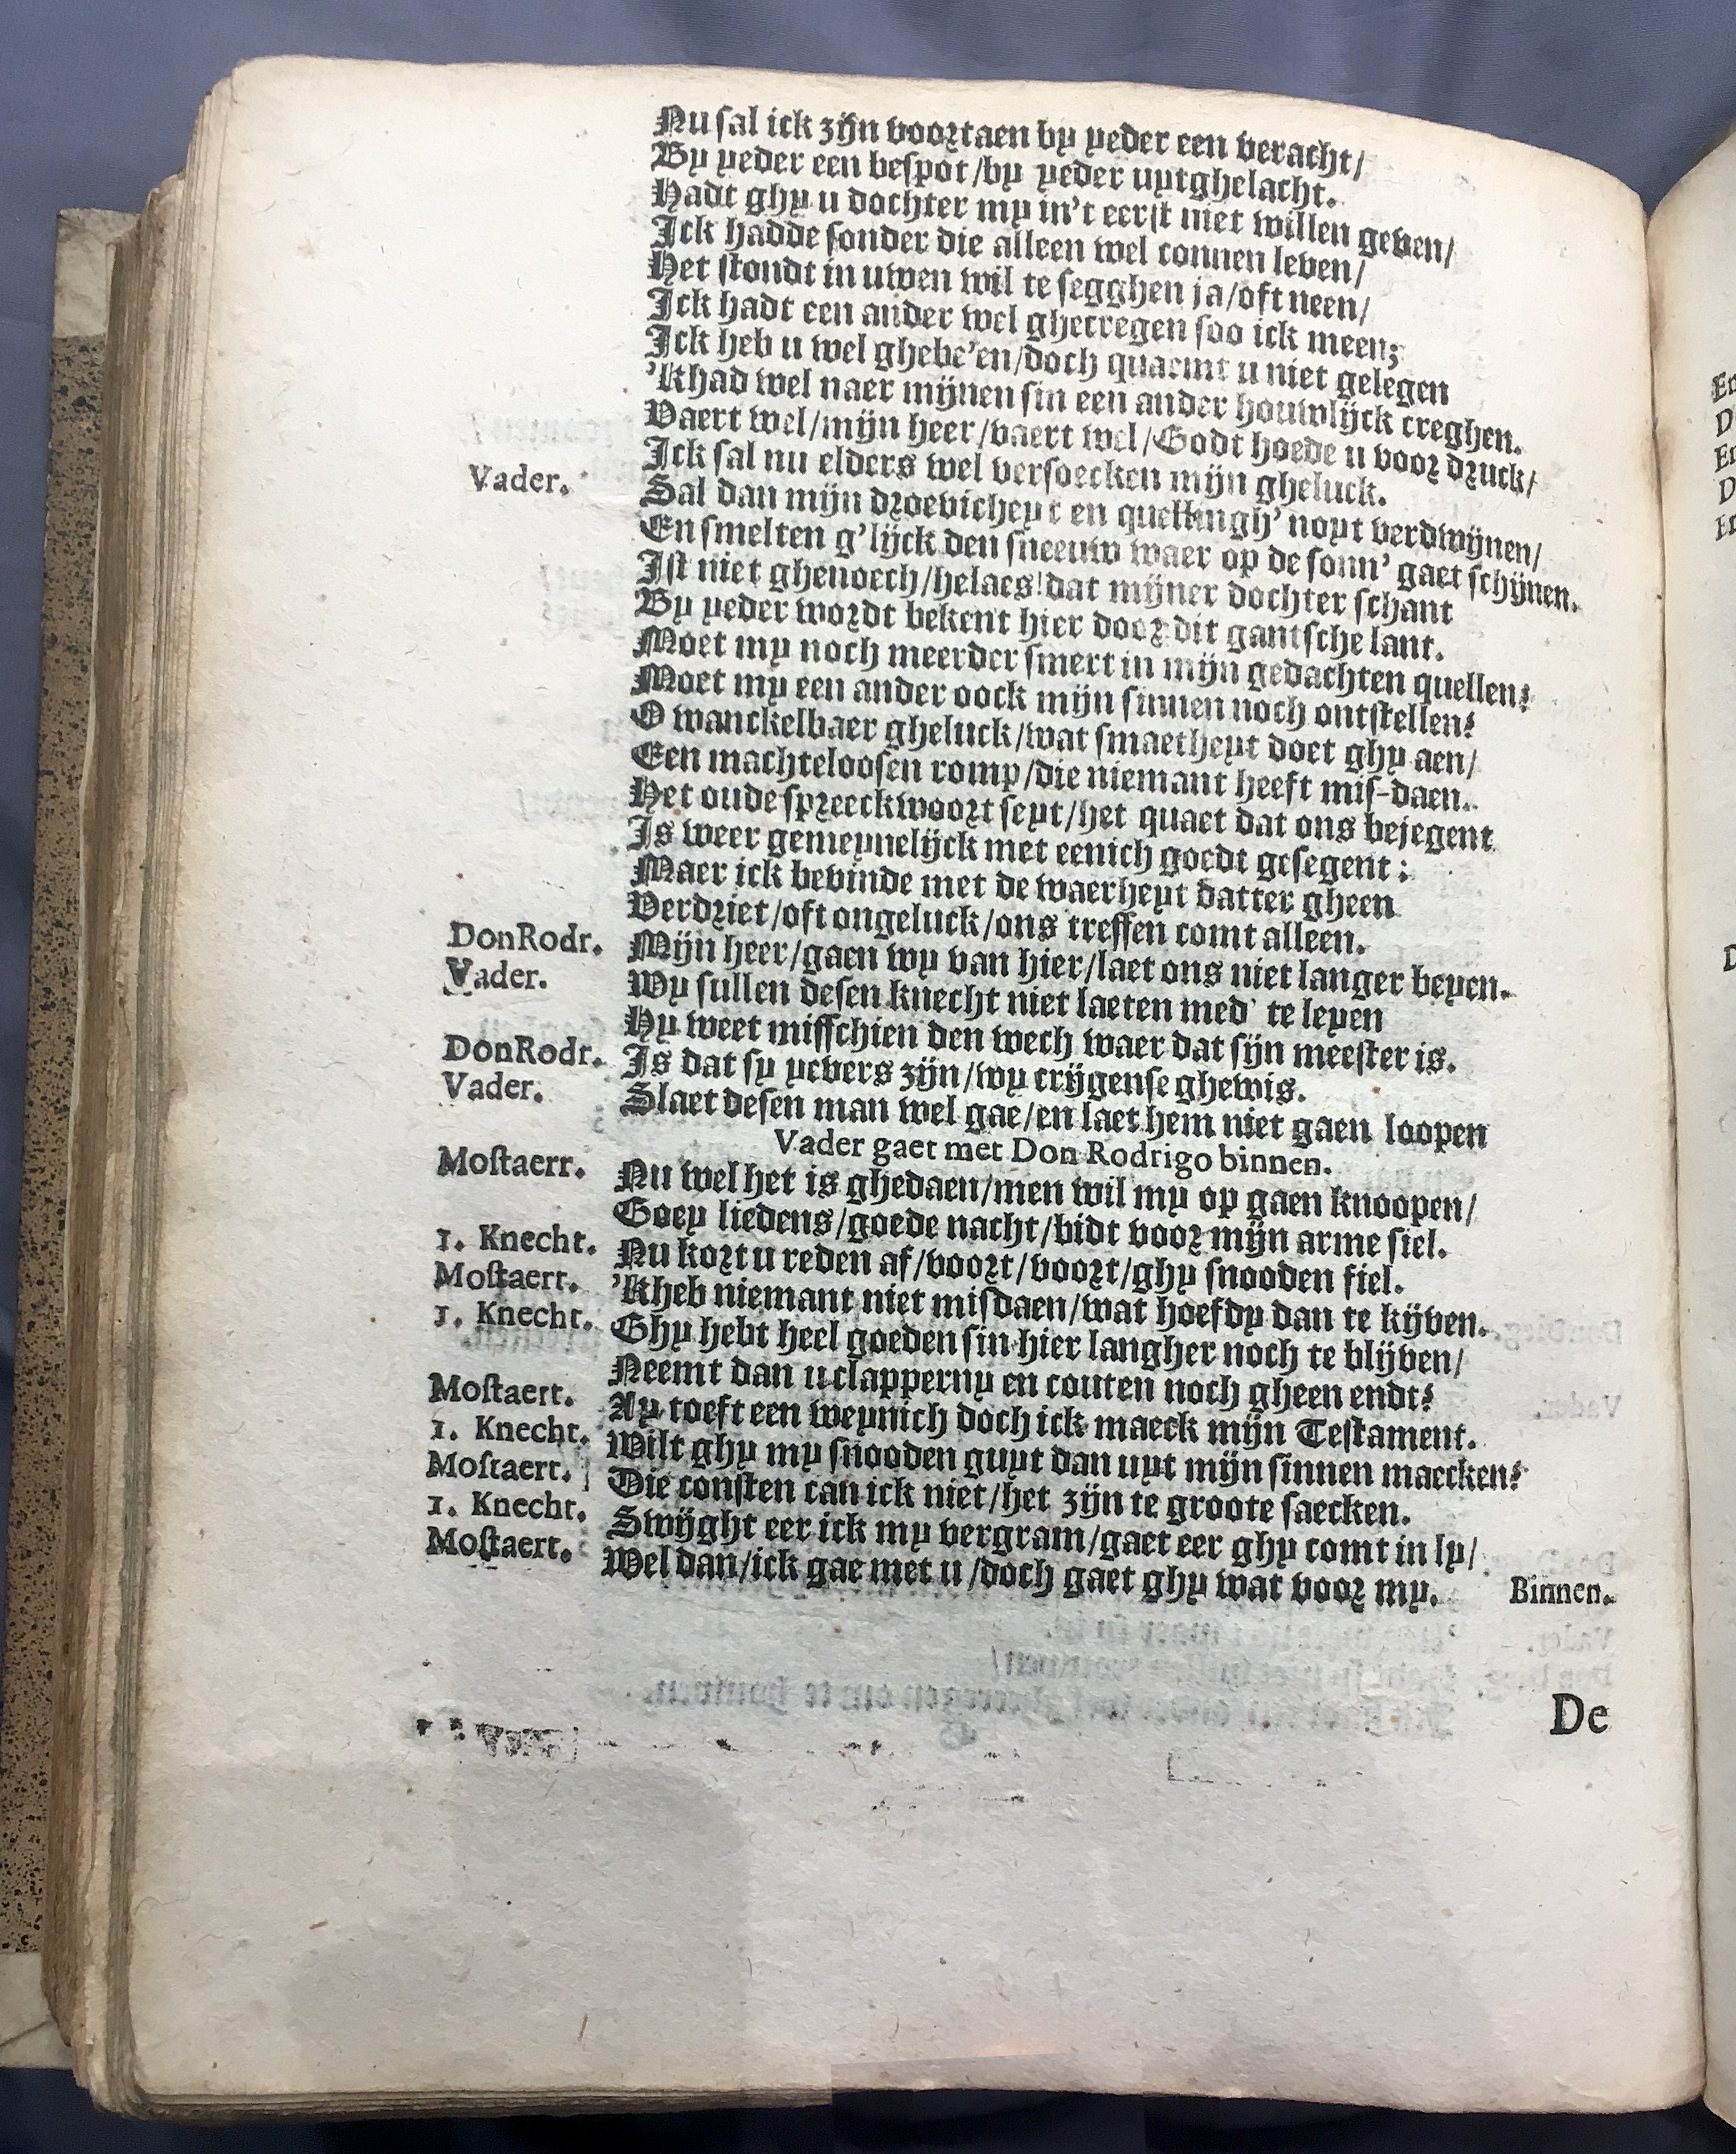 Nu sal ick zijn voortaen by yeder een veracht/
By yeder een bespot/by yeder uytghelacht.
Hadt ghy u dochter my in't eerst niet willen geven/
Ick hadde sonder die alleen wel connen leven/
Het stondt in uwen wil te segghen ja/oft neen/
Ick hadt een ander wel ghecregen soo ick meen;
Ick heb u wel ghebe'en/doch quaemt u niet gelegen
'Khad wel naer mijnen sin een ander houwlijck creghen.
Vaert wel/mijn heer/vaert wel/Godt hoede u voor druck/
Ick sal nu elders wel versoecken mijn gheluck.
Vader. Sal dan mijn droevicheyt en quellingh' noyt verdwijnen/
En smelten g'lijck den sneeuw waer op de sonn' gaet schijnen.
Ist niet ghenoech/helaes!dat mijner dochter schant
By yeder wordt bekent hier door dit gantsche lant.
Moet my noch meerder smert in mijn gedachten quellen?
Moet my een ander oock mijn sinnen noch ontstellen?
O wanckelbaer gheluck/wat smaetheyt doet ghy aen/
Een machteloosen romp/die niemant heeft mis-daen.
Het oude spreeckwoort seyt/het quaet dat ons bejegent
Is weer gemeynelijck met eenich goedt gesegent:
Maer ick bevinde met de waerheyt datter gheen
Verdriet/oft ongeluck/ons treffen comt alleen.
DonRodr. Mijn heer/gaen wy van hier/laet ons niet langer beyen.
Vader. Wy sullen desen knecht niet laeten med' te leyen
Hy weet misschien den wech waer dat sijn meester is.
DonRodr. Is dat sy yevers zijn/wy crijgense ghewis.
Vader. Slaet desen man wel gae/en laet hem niet gaen loopen
Vader gaet met Don Rodrigo binnen.
Mostaerr. Nu wel het is ghedaen/men wil my op gaen knoopen/
Goey liedens/goede nacht/bidt voor mijn arme siel.
1. Knecht. Nu kort u reden af/voort/voort/ghy snooden fiel.
Mostaert. 'Kheb niemant niet misdaen/wat hoefdy dan te kijven.
1. Knecht. Ghy hebt heel goeden sin hier langher noch te blijven/
Neemt dan u clapperny en couten noch gheen endt?
Mostaert. Ay toeft een weynich doch ick maeck mijn Testament.
1. Knecht. Wilt ghy my snooden guyt dan uyt mijn sinnen maecken?
Mostaert. Die consten can ick niet/het zijn te groote saecken.
1. Knecht. Swijght eer ick my vergram/gaet eer ghy comt in ly/
Mostaert. Wel dan/ick gae met u/doch gaet ghy wat voor my. Binnen.
De